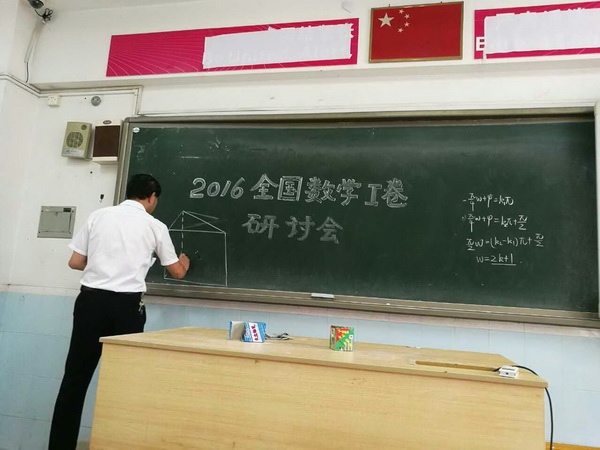 2016全国数学I卷
研讨会
-π/4w+φ=k₁π
π/4w+φ=k₂π+π/2
π/2w=(k₂-k₁)π+π/2
w=2k+1